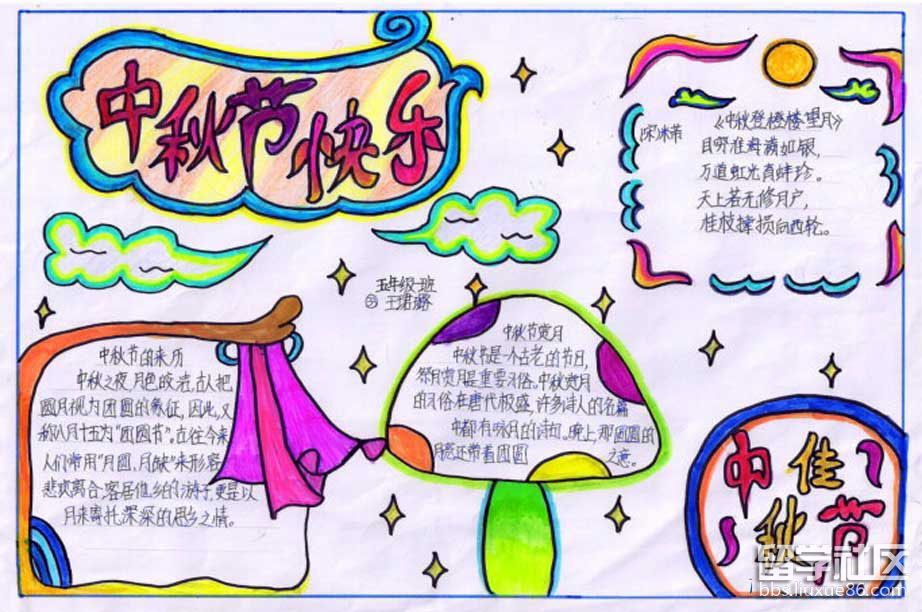 中秋节快乐
《中秋登橙楼望月》
[宋]米芾
目穷淮海满如银,
万道虹光育蚌珍。
天上若无修月户,
桂枝撑损向西轮。
五年级一班
王
中秋节的来历
中秋之夜,月色皎洁,古人把
圆月视为团圆的象征,因此,又
称八月十五为"团圆节"。古往今来
人们常用"月圆、月缺"来形容
悲欢离合,客居他乡的游子,更是以
月来寄托深深的思乡之情。
中秋节赏月
中秋节是一个古老的节日,
祭月赏月是重要习俗。中秋赏月
的习俗在唐代极盛,许多诗人的名篇
中都有咏月的诗句。晚上那圆圆的
月亮还带着团圆之意。
中佳
秋节
留学社区
bbs.liuxue86.com